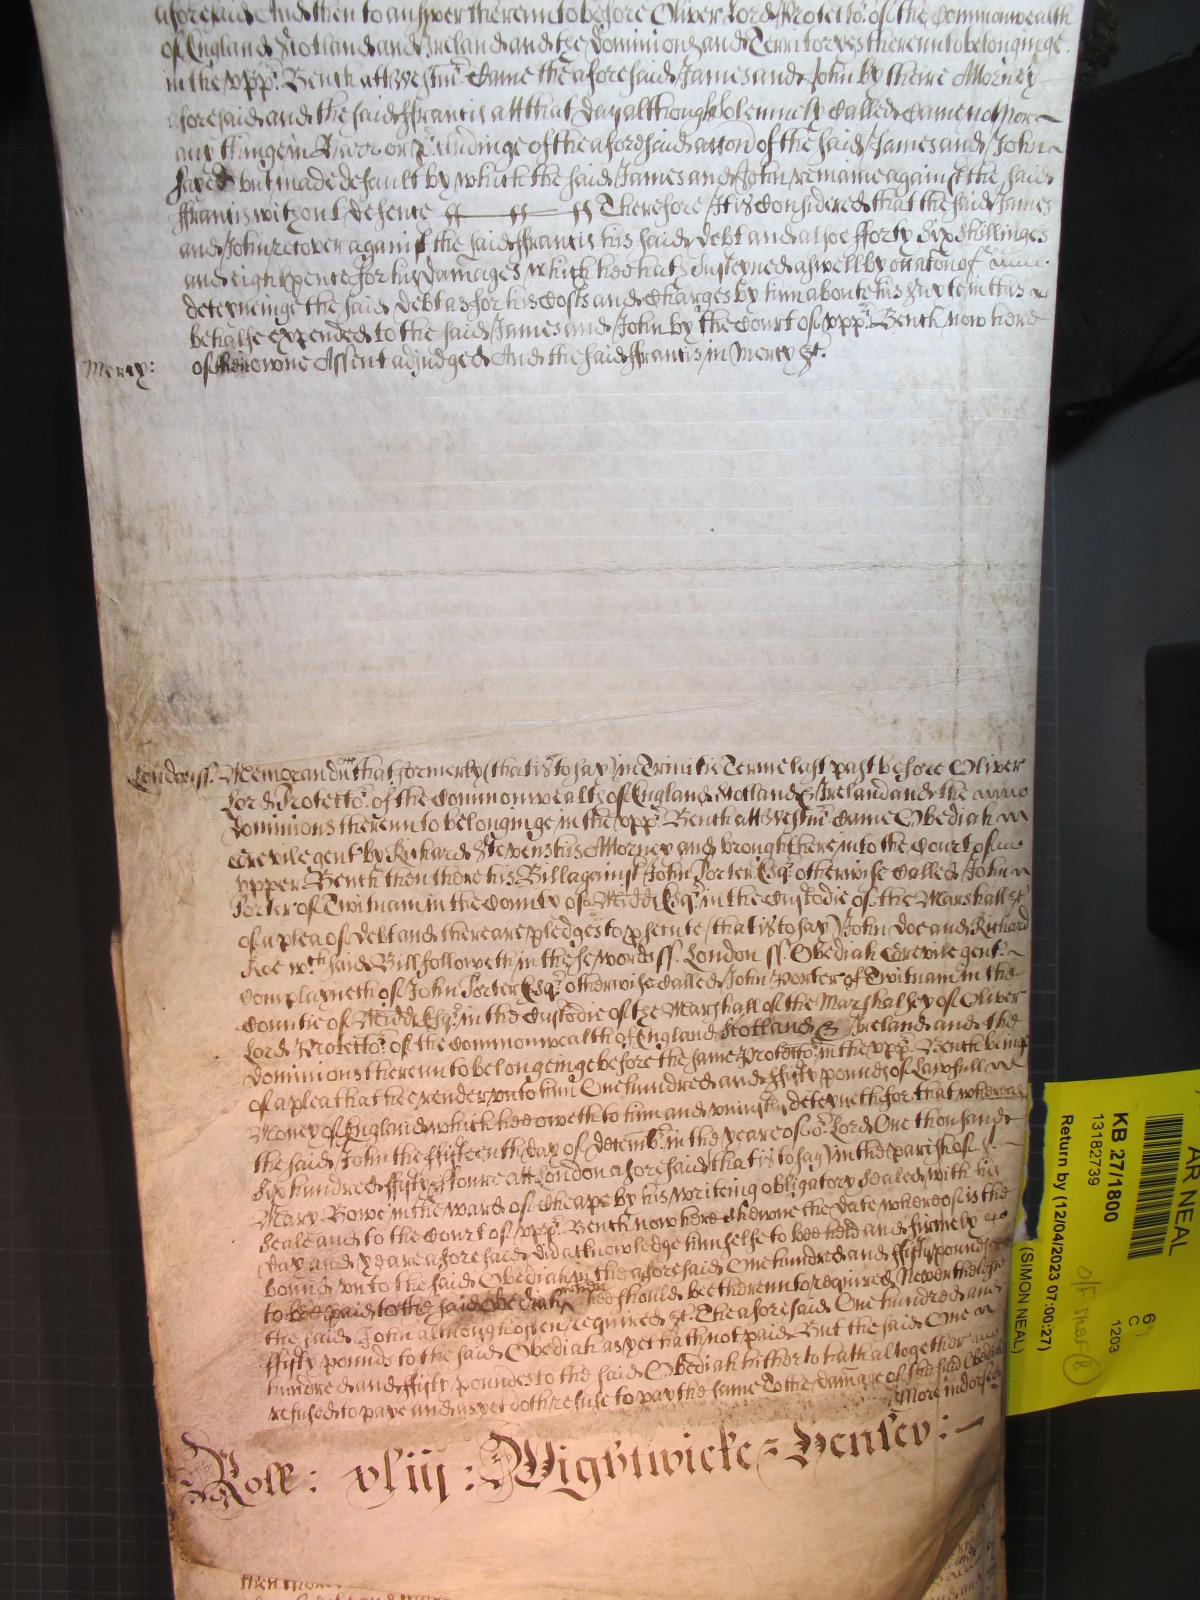 aforesaid And then to answer thereunto before Oliver Lord Protector of the Commonwealth
of England Scotland and Ireland and the Dominions and Territoryes thereunto belonginge
in the upp Bench att Westm Came the aforesaid James and John by theire Attorney
aforesaid and the said ffrancis att that day although solemnely Called Came not Nor
any thinge in Barr or p'cludinge of the aforesaid accon of the said James and John
sayed but made default by which the said James and John remaine against the said
ffrancis without defence Therefore It is Considered that the said James
and John recover against the said ffrancis his said debt and alsoe fforty Six Shillinges
and eight pence for his Damages which hee hath Susteyned aswell by occation of
deteyneinge the said debt as for his Costs and Charges by him aboute his Suyte in this
behalfe expended to the said James and John by the Court of upp Bench now here
Mercy: of their owne Assent adjudged And the said ffrancis in Mercy &c.
London ss. Memorandu that formerly (that is to say) in Trinitie Terme last past before Oliver
Lord Protector of the Commonwealth of England Scotland & Ireland and the
Dominions thereunto belonginge in the upp Bench att Westm Came Obediah
Grevile gent by Richard Stevens his Attorney and brought here into the Court of
upper Bench then there his Bill against John Porter Esq otherwise Called John
Porter of Twitnam in the County of Midd Esq in the Custodie of the Marshall &c
of a plea of debt and there are pledges to p'secute (that is to say) John Doe and Richard
Roe wch said Bill followeth in these words ss. London ss. Obediah Grevile gent
Complayneth of John Porter Esq otherwise Called John Porter of Twitnam in the
Countie of Midd Esq in the Custodie of the Marshall of the Marshalsey of Oliver
Lord Protector of the Commonwealth of England Scotland & Ireland and the
Dominions thereunto belongeinge before the same Protector in the upp Bench being
of a plea that hee render unto him One hundred and ffifty pounds of Lawfull
Money of England which hee oweth to him and uniustly deteyneth for that whereas
the said John the ffifteenth day of Decemb in the yeare of or Lord One thousand
Six hundred ffifty & ffoure att London aforesaid that is to say) in the parish of
Mary Bowe in the ward of Cheape by his writeing obligatory Sealed with his
Seale and to the Court of upp Bench now here shewne the date whereof is the
day and yeare aforesaid did acknowledge himselfe to bee held and firmely
bound unto the said Obediah in the aforesaid One hundred and ffifty pounds
to bee paid to the said Obediah when hee should bee thereunto required Neverthelesse
the said John although often required &c. The aforesaid One hundred and
ffifty pounds to the said Obediah as yet hath not paid But the said One
hundred and ffifty pounds to the said Obediah hitherto hath altogether
refused to paye and as yet doth refuse to pay the same To the damage of the said Obediah
More indorsed
Roll: xliij: Wightwicke = Henley:
AR NEAL
KB 27/1800
13182739
C
1203
Return by (12/04/2023 07:00:27)
(SIMON NEAL)